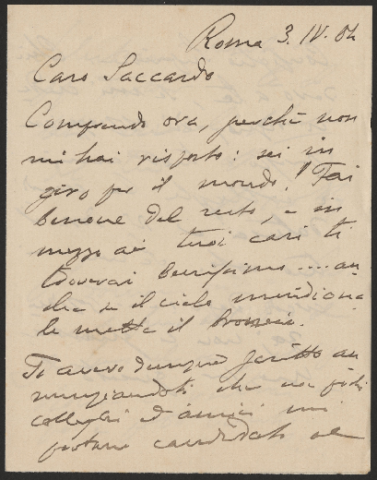 Roma 3. IV. 04
Caro Saccardo
Comprendo ora, perchè non
mi hai risposto: sei in
giro per il mondo! Fai
benone del resto, e in
mezzo ai tuoi cari ti
troverai benissimo .... an
che se il cielo meridiona
le mette il broncio.
Ti avevo dunque scritto an
nunziandoti che
colleghi ed amici mi
portano candidato al